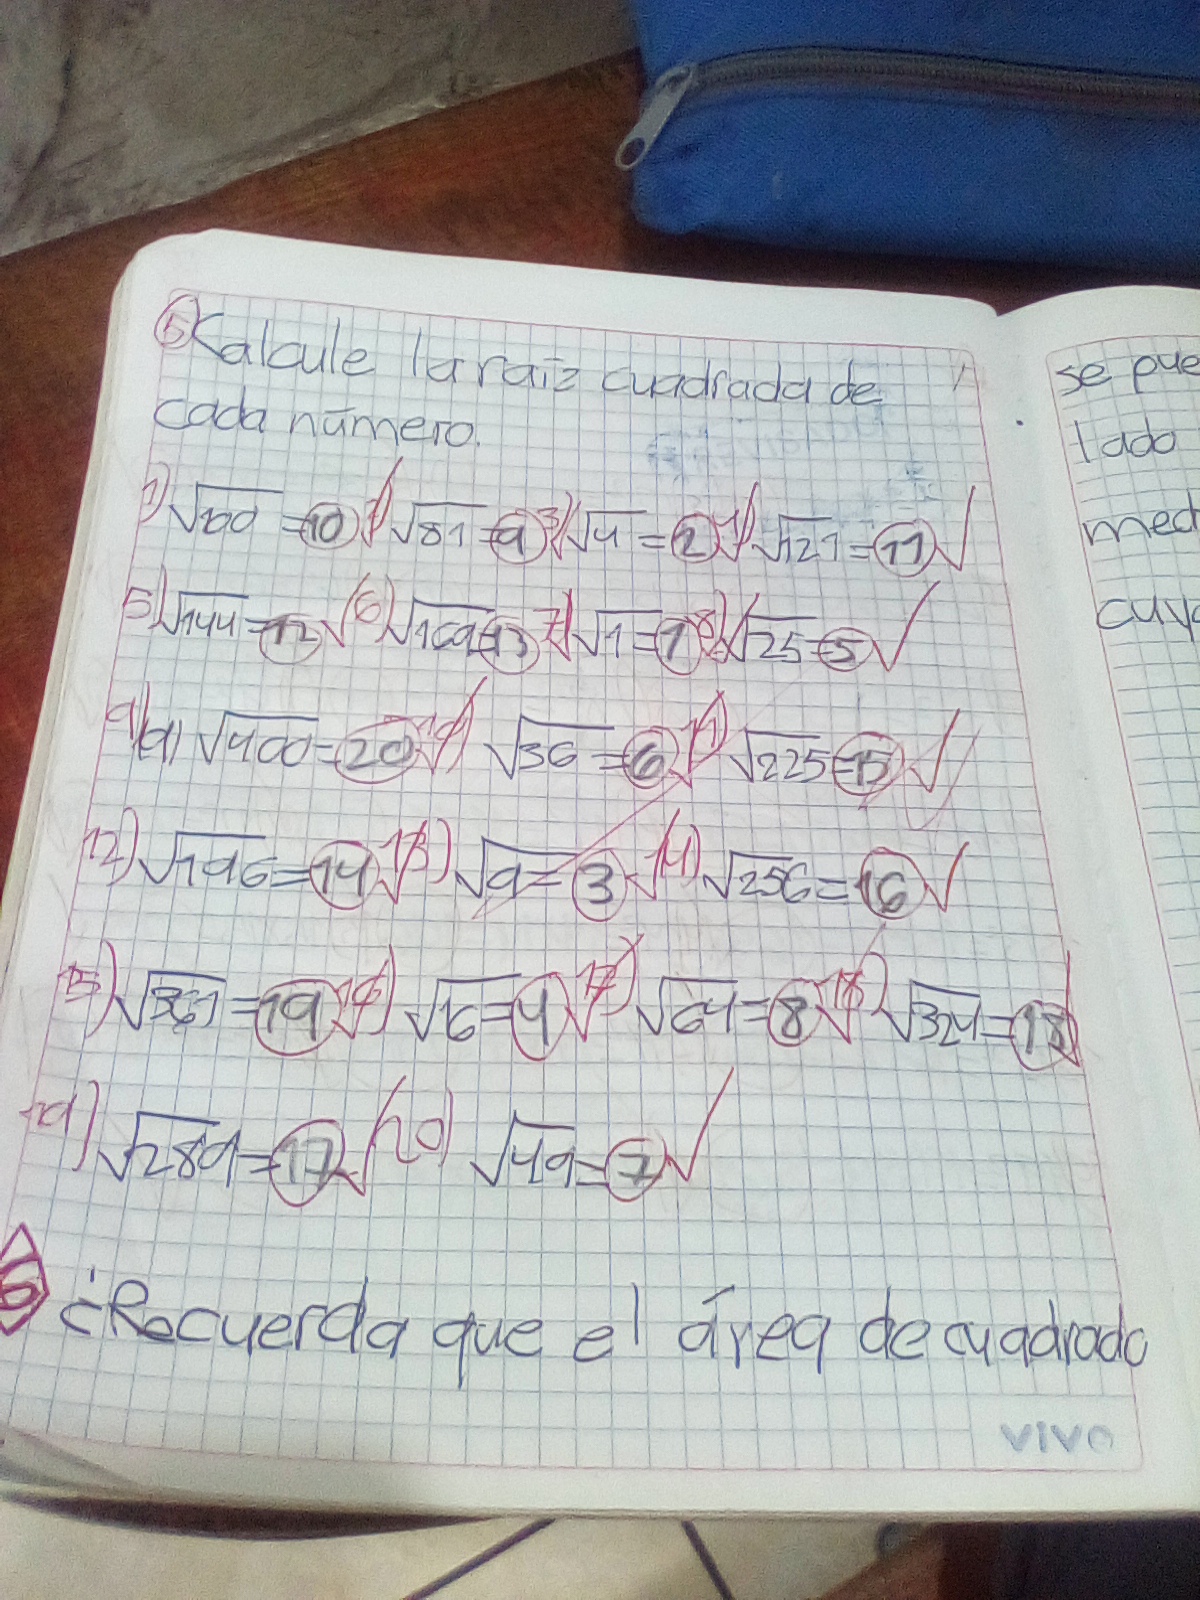 5 Calcule la raíz cuadrada de
cada número.
1) √100 = 10 2) √81 = 9 3) √4 = 2 4) √121 = 11
5) √144 = 12 6) √169 = 13 7) √1 = 1 8) √25 = 5
9) √400 = 20 10) √36 = 6 11) √225 = 15
12) √196 = 14 13) √9 = 3 14) √256 = 16
15) √361 = 19 16) √16 = 4 17) √64 = 8 18) √324 = 18
19) √289 = 17 20) √49 = 7
6 ¿Recuerda que el área de cuadrado
vivo
se pue
lado
med
cuya